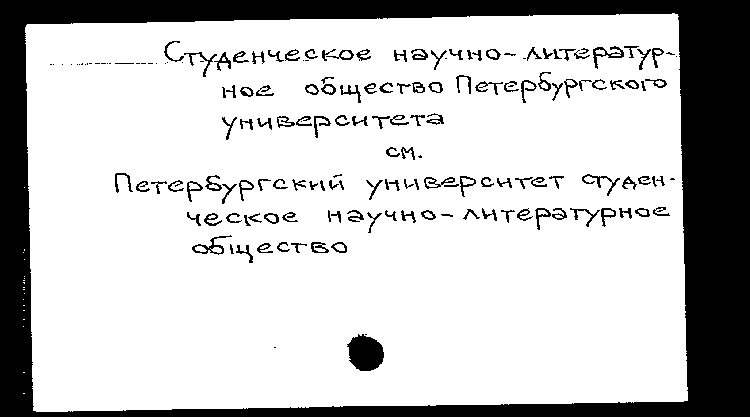 Студенческое научно-литератур-
ное общество Петербургского
университета
см.
Петербургский университет студен-
ческое научно-литературное
общество